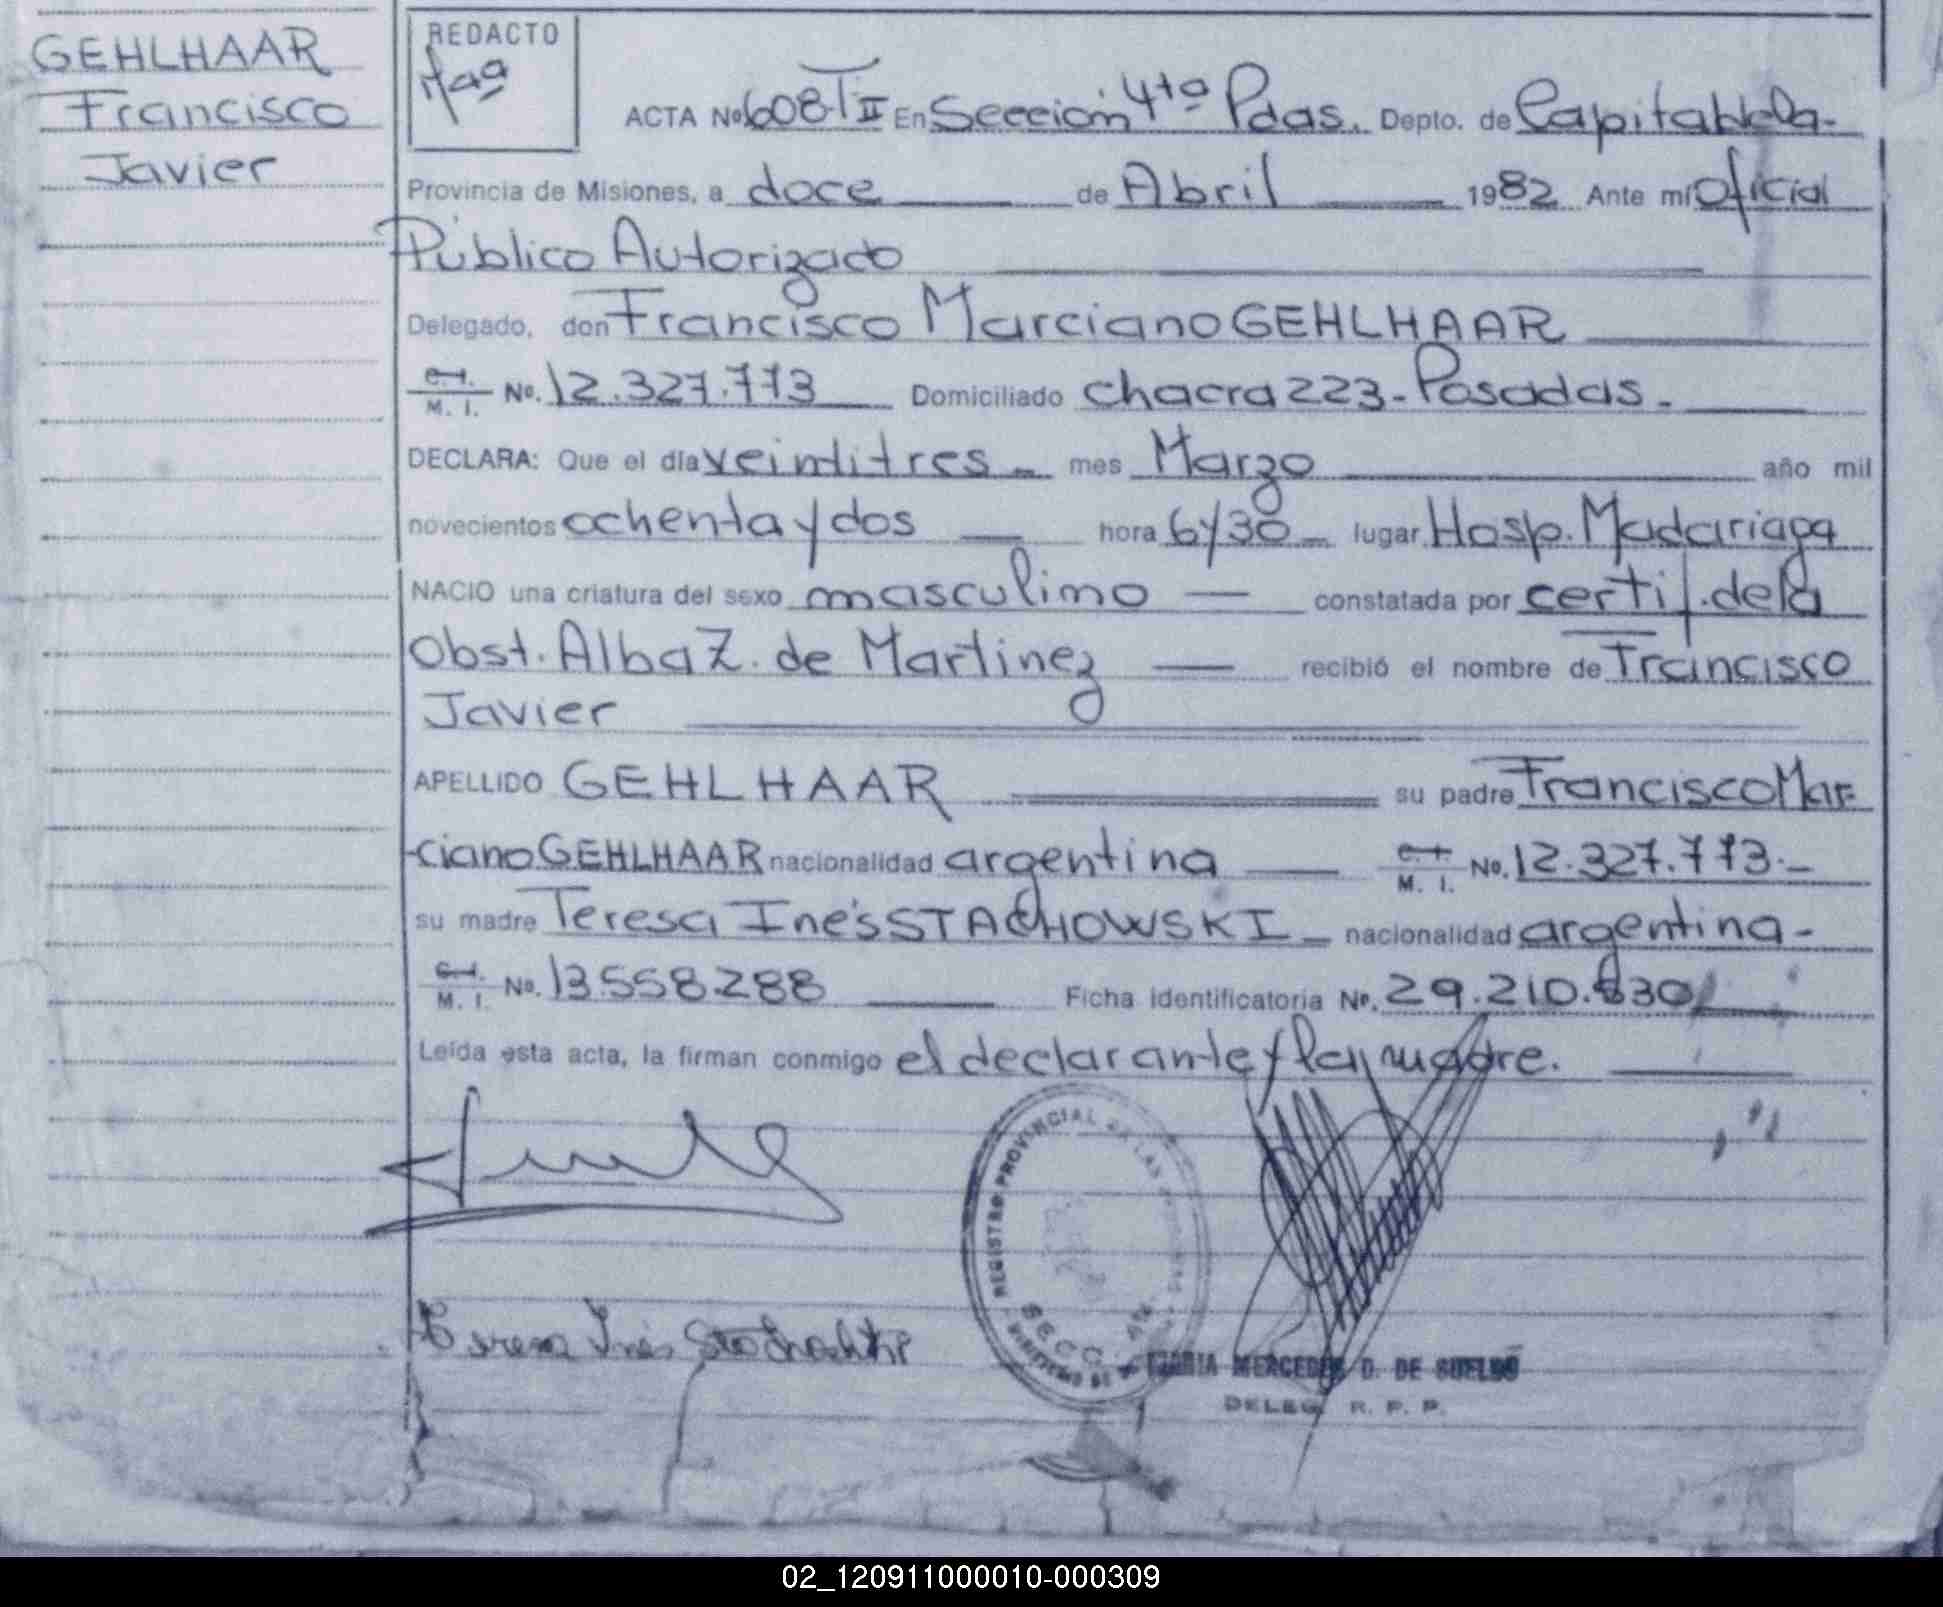 GEHLHAAR
Francisco
Javier
REDACTO
ACTA Nº 608-TII En Sección 4ta Pdas. Depto. de Capital
Provincia de Misiones, a doce de Abril 1982 Ante mí Oficial
Público Autorizado
Delegado, don Francisco Marciano GEHLHAAR
C.I. M. I. No. 12.327.773 Domiciliado chacra 223-Posadas.
DECLARA: Que el día veintitres mes Marzo año mil
novecientos ochenta y dos hora 6y30 lugar Hosp. Madariaga
NACIO una criatura del sexo masculino constatada por certif. de la
Obst. Alba Z. de Martinez recibió el nombre de Francisco
Javier
APELLIDO GEHLHAAR su padre Francisco Mar-
ciano GEHLHAAR nacionalidad argentina C.I. M. I. No. 12.327.773.-
su madre Teresa Inés STACHOWSKI nacionalidad argentina-
C.I. M. I. No. 13.558.288 Ficha identificatoria Nº. 29.210.830
Leída esta acta, la firman conmigo el declarante y la madre.
REGISTRO PROVINCIAL DE LAS PERSONAS
SECC. 4ta
Teresa Inés Stachowski
MARIA MERCEDES D. DE SUELDO
DELEG. R. P. P.
02_120911000010-000309